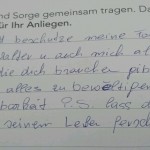 nd Sorge gemeinsam tragen. Da
ür Ihr Anliegen.
beschütze meine To
u auch mich
die dich brauchen gib
alles zu bewältige
P.S. lass d
seinem Leben